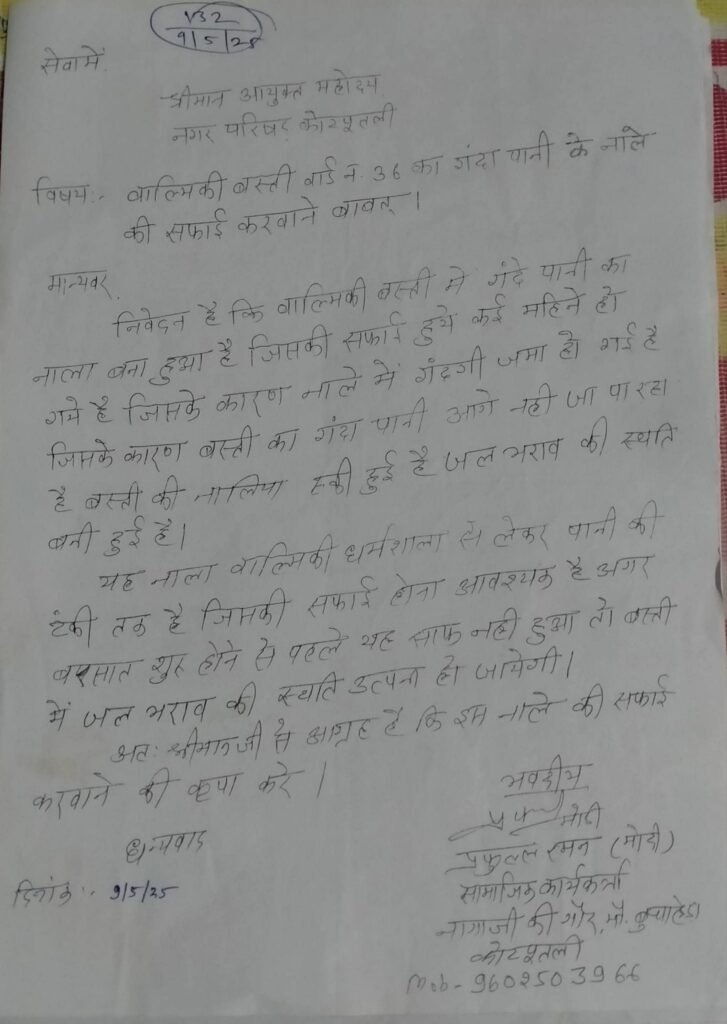 132
9/5/25
सेवामें,
श्रीमान आयुक्त महोदय
नगर परिषद, कोटपूतली
विषय:- वाल्मिकी बस्ती वार्ड नं. 36 का गंदा पानी के नाले
की सफाई करवाने बाबत् ।
मान्यवर,
निवेदन है कि वाल्मिकी बस्ती मे गंदे पानी का
नाला बना हुआ है जिसकी सफाई हुये कई महिने हो
गये है जिसके कारण नाले में गंदगी जमा हो गई है
जिसके कारण बस्ती का गंदा पानी आगे नही जा पा रहा
है बस्ती की नालिया रूकी हुई है जल भराव की स्थति
बनी हुई है।
यह नाला वाल्मिकी धर्मशाला से लेकर पानी की
टंकी तक है जिसकी सफाई होना आवश्यक है अगर
बरसात शुरु होने से पहले यह साफ नही हुआ तो बस्ती
में जल भराव की स्थति उत्पना हो जायेगी।
अत: श्रीमानजी से आग्रह है कि इस नाले की सफाई
करवाने की कृपा करे ।
धन्यवाद
भवदीय
मोदी
प्रफुल्ल रमन (मोदी)
सामाजिक कार्यकर्त्ता
नागाजी की गौर, मौ. बुचाहेडा
कोटपूतली
Mob - 9602503966
दिनांक :- 9/5/25